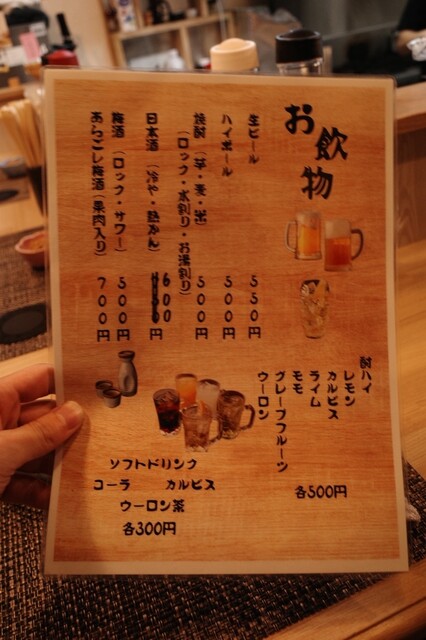 お飲物
生ビール 550円
ハイボール 500円
焼酎（芋・麦・米） 500円
（ロック・水割り・お湯割り）
日本酒（冷や・熱かん） 600円
梅酒（ロック・サワー） 500円
あらごし梅酒（果肉入り） 700円
酎ハイ
レモン
カルピス
ライム
モモ
グレープフルーツ
ウーロン
各500円
ソフトドリンク
コーラ カルピス
ウーロン茶
各300円